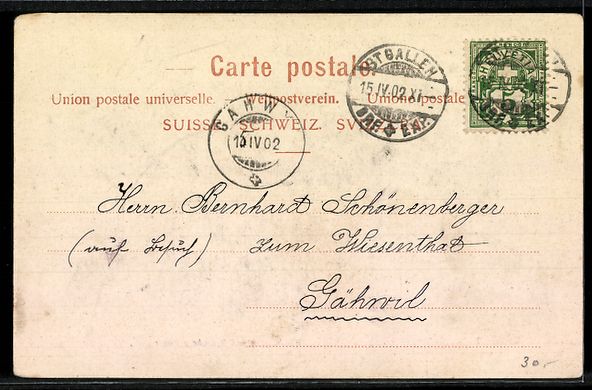 Carte postale.
Union postale universelle. Weltpostverein. Unione postale
SUISSE. SCHWEIZ. SVIZZERA.
ST GALLEN
15.IV.02.XI
BRF. EXP.
GÄHWYL
15 IV 02
HELVETIA
Herrn. Bernhard Schönenberger
(auf Besuch) zum Wiesenthal
Gähwil
30.-